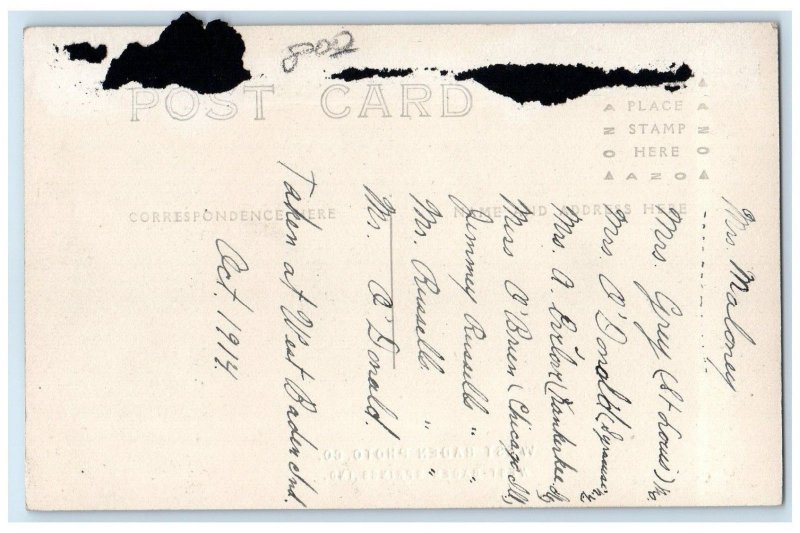 802
POST CARD
PLACE
STAMP
HERE
CORRESPONDENCE HERE
NAME AND ADDRESS HERE
Mrs. Maloney
Mrs. Grey (St Louis)
Mrs O'Donald (Syracuse
Mrs. A. (Kankakee
Miss O'Brien (Chicago Ill)
Jimmey Russells "
Mr. Russells " "
Mr. O'Donald.
Taken at West Baden Ind.
Oct. 1914.
WEST BADEN PHOTO CO.